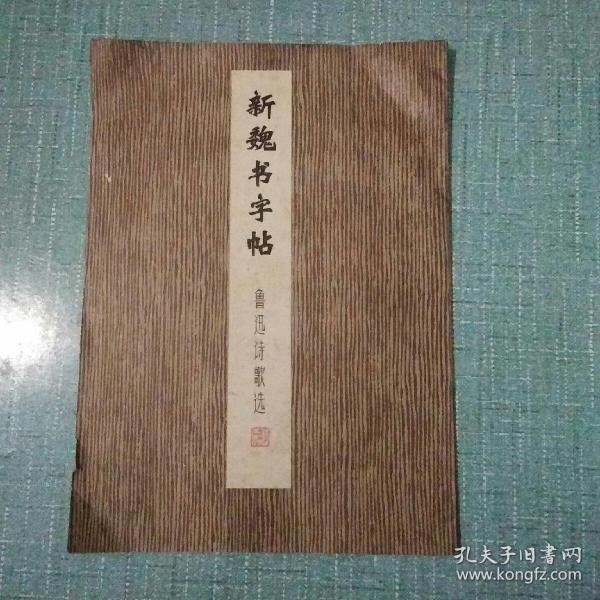 新魏书字帖
鲁迅诗歌选
孔夫子旧书网
www.kongfz.com